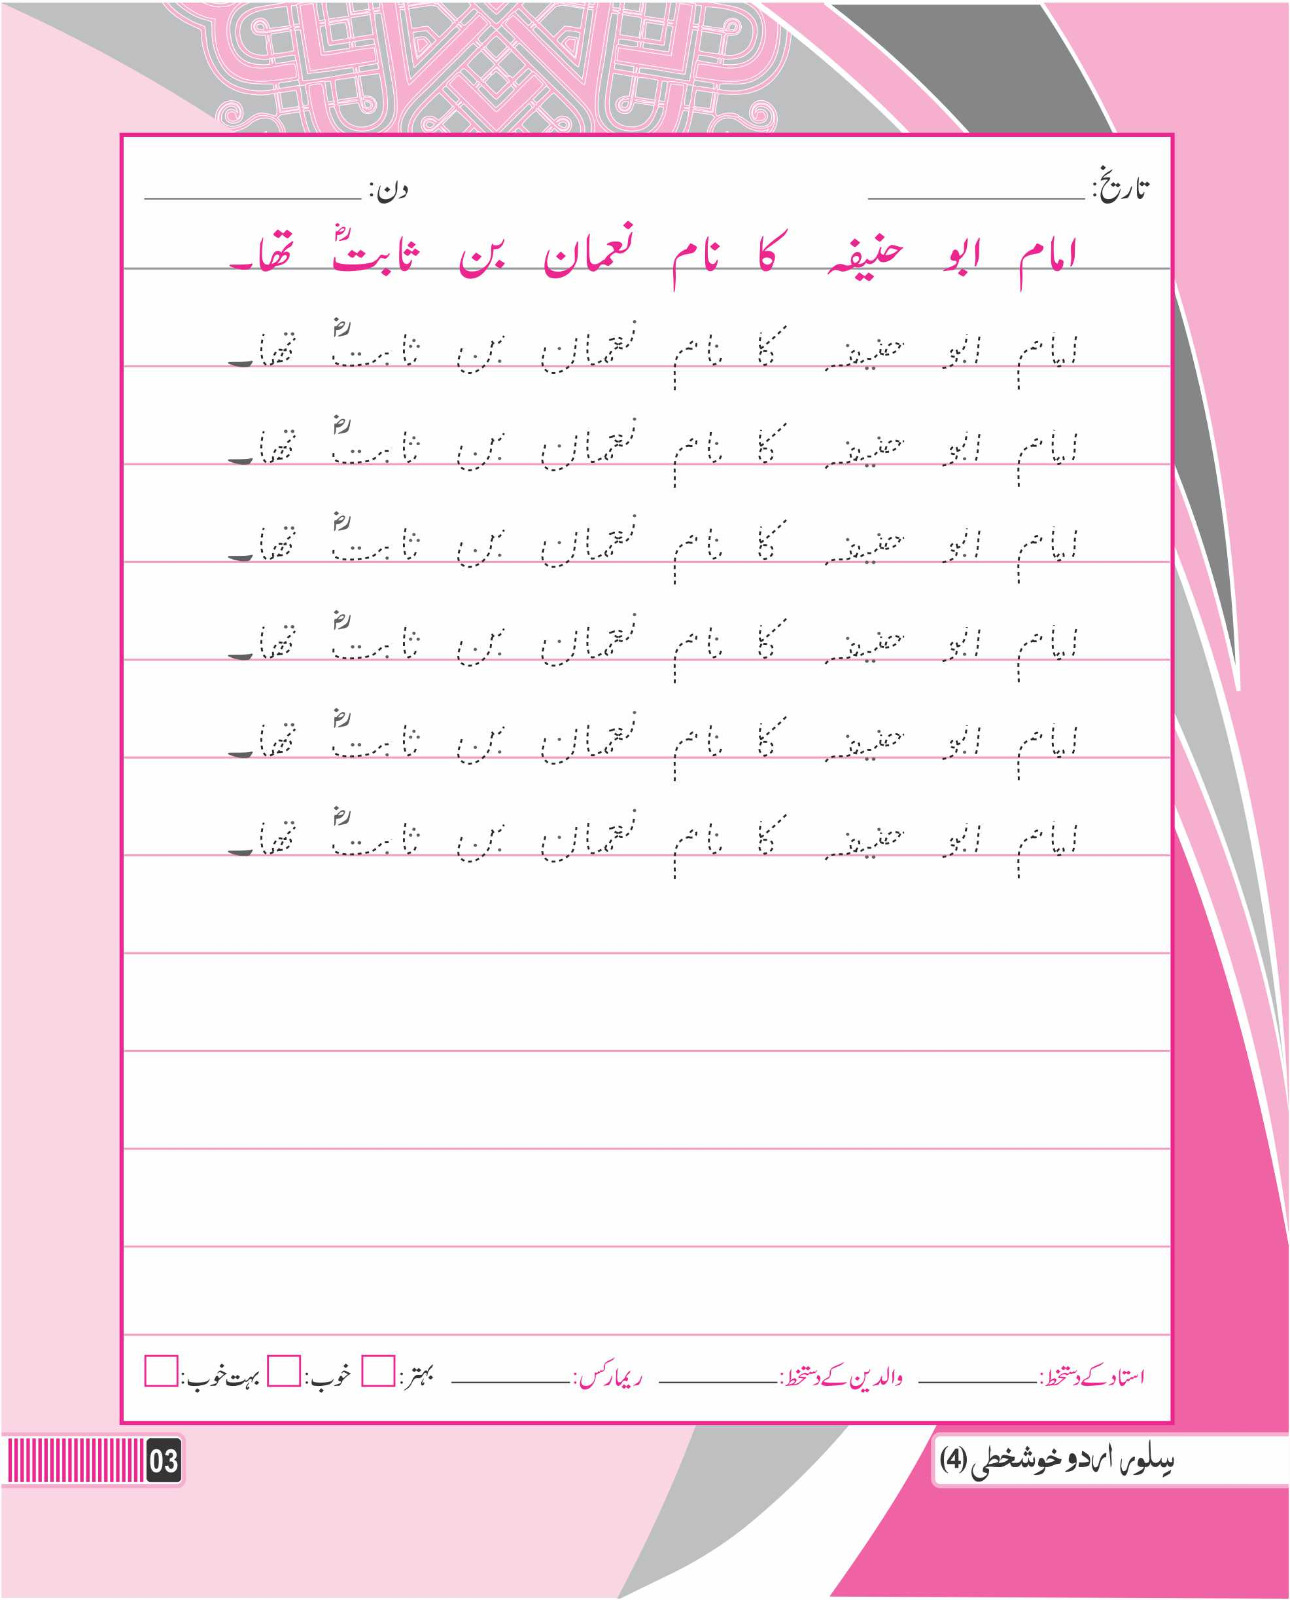 تاریخ: ____________ دن: ____________
امام ابو حنیفہ کا نام نعمان بن ثابتؓ تھا۔
امام ابو حنیفہ کا نام نعمان بن ثابتؓ تھا۔
امام ابو حنیفہ کا نام نعمان بن ثابتؓ تھا۔
امام ابو حنیفہ کا نام نعمان بن ثابتؓ تھا۔
امام ابو حنیفہ کا نام نعمان بن ثابتؓ تھا۔
امام ابو حنیفہ کا نام نعمان بن ثابتؓ تھا۔
امام ابو حنیفہ کا نام نعمان بن ثابتؓ تھا۔
استاد کے دستخط: ________ والدین کے دستخط: ________ ریمارکس: ________ بہتر: خوب: بہت خوب:
سلور اردو خوشخطی (4)
03